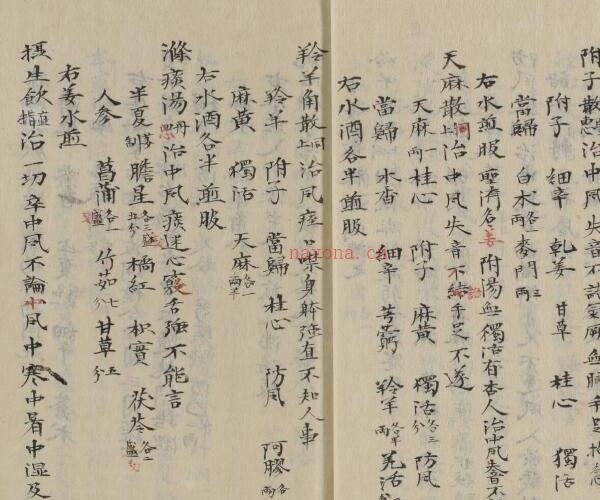 附子散 治中風失音不語
附子 細辛 乾姜 甘草 桂心 獨活
當歸 白朮各一兩 麥門三兩
右水煎服 附湯 獨活有杏人治中風
天麻散上同治中風失音不語手足不遂
天麻一兩 桂心 附子 麻黄 獨活各三分 防風
當歸 木香 細辛 芎藭 羚羊各半兩 羌活
右水酒各半煎服
羚羊角散上同治風痙口噤身躰強直不知人事
羚羊 附子 當歸 桂心 防風 阿膠各兩
麻黄 獨活 天麻各一兩半
右水酒各半煎服
滌痰湯 治中風痰迷心竅舌強不能言
半夏 膽星 橘紅 枳實 茯苓各二
人参 菖蒲各一 竹茹七分 甘草五分
右姜水煎
攝生飲直指治一切卒中風不論中風中寒中暑中湿及
naxara.cn